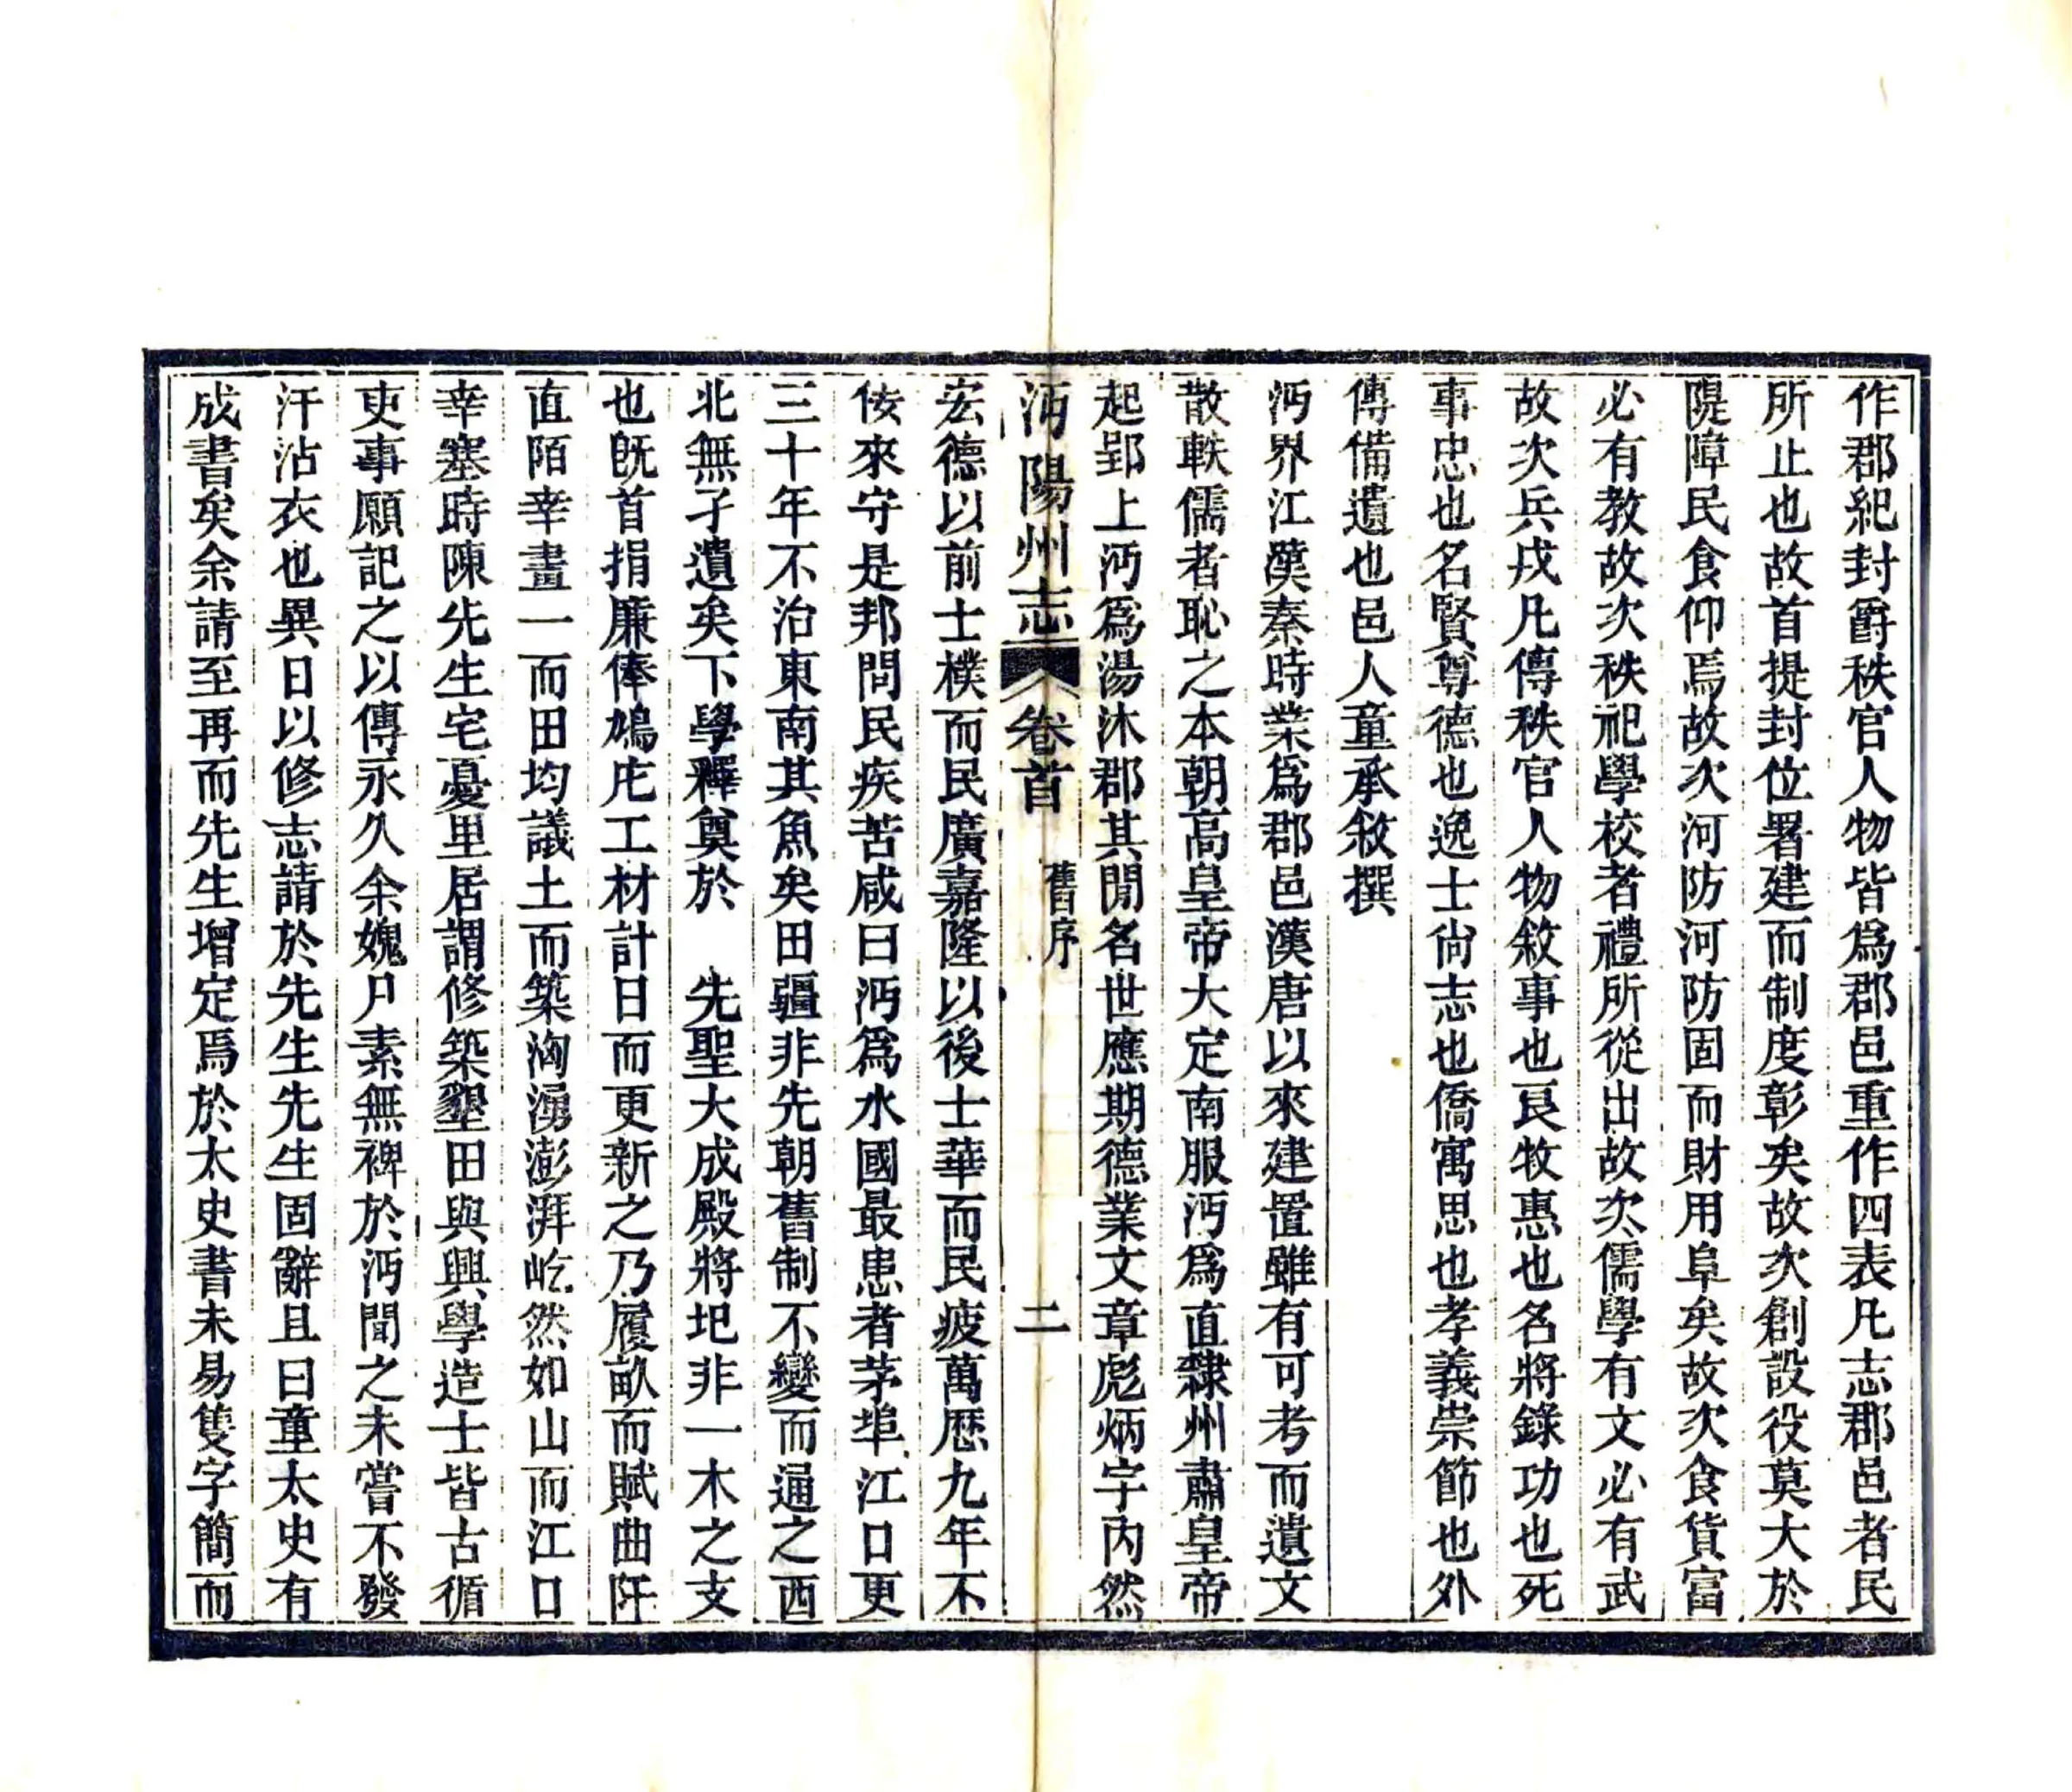 作郡紀封爵秩官人物皆爲郡邑重作四表凡志郡邑者民
所止也故首提封位署建而制度彰矣故次創設役莫大於
隄障民食仰焉故次河防河防固而財用阜矣故次食貨富
必有教故次秩祀學校者禮所從出故次儒學有文必有武
故次兵戎凡傳秩官人物敘事也良牧惠也名將錄功也死
事忠也名賢尊德也逸士尙志也僑寓思也孝義崇節也外
傳備遺也邑人童承敘撰
沔界江漢秦時業爲郡邑漢唐以來建置雖有可考而遺文
散軼儒者恥之本朝高皇帝大定南服沔爲直隸州肅皇帝
起郢上沔爲湯沐郡其間名世應期德業文章彪炳宇內然
沔陽州志 卷首 舊序 二
宏德以前士樸而民廣嘉隆以後士華而民疲萬歷九年不
佞來守是邦問民疾苦咸曰沔爲水國最患者茅埠江口更
三十年不治東南其魚矣田疆非先朝舊制不變而逋之西
北無孑遺矣下學釋奠於 先聖大成殿將圯非一木之支
也旣首捐廉俸鳩庀工材計日而更新之乃履畝而賦曲阡
直陌幸畫一而田均議土而築洶湧澎湃屹然如山而江口
幸塞時陳先生宅憂里居謂修築墾田與興學造士皆古循
吏事願記之以傳永久余媿尸素無裨於沔聞之未嘗不發
汗沾衣也異日以修志請於先生先生固辭且曰童太史有
成書矣余請至再而先生增定焉於太史書未易隻字簡而